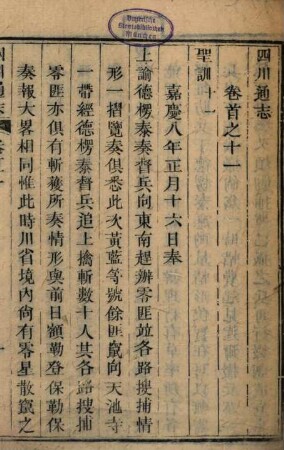 四川通志
卷首之十一
聖訓十一
嘉慶八年正月十六日奉
上諭德楞泰奏督兵向東南趕辦零匪竝各路搜捕情
形一摺覽奏俱悉此次黃藍等號餘匪竄向天池寺
一帶經德楞泰督兵追上擒斬數十人其各路搜捕
零匪亦俱有斬獲所奏情形與前日額勒登保勒保
奏報大畧相同惟此時川省境內尙有零星散竄之
Bayerische
Staatsbibliothek
München